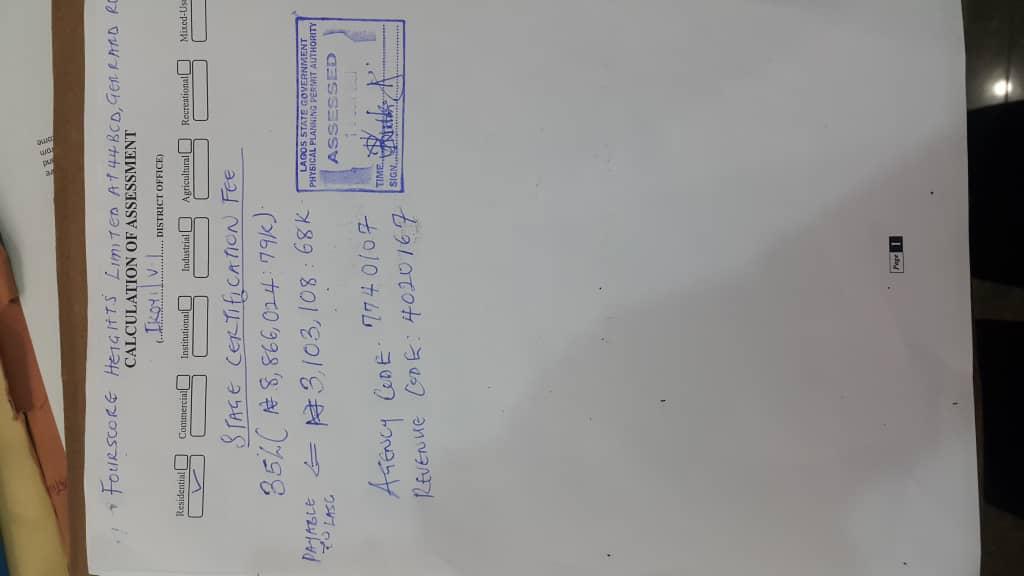 FOURSCORE HEIGHTS LIMITED AT 44BCD, GERRARD
CALCULATION OF ASSESSMENT
(...IKOYI/V.I... DISTRICT OFFICE)
Residential Commercial Institutional Industrial Agricultural Recreational Mixed-Us
✓
STAGE CERTIFICATION FEE
35% (₦8,866,024:79K)
PAYABLE TO LASG ⇐ ₦3,103,108:68K
AGENCY CODE: 7740107
REVENUE CODE: 4020167
LAGOS STATE GOVERNMENT
PHYSICAL PLANNING PERMIT AUTHORITY
ASSESSED
TIME
SIGN
Page 1